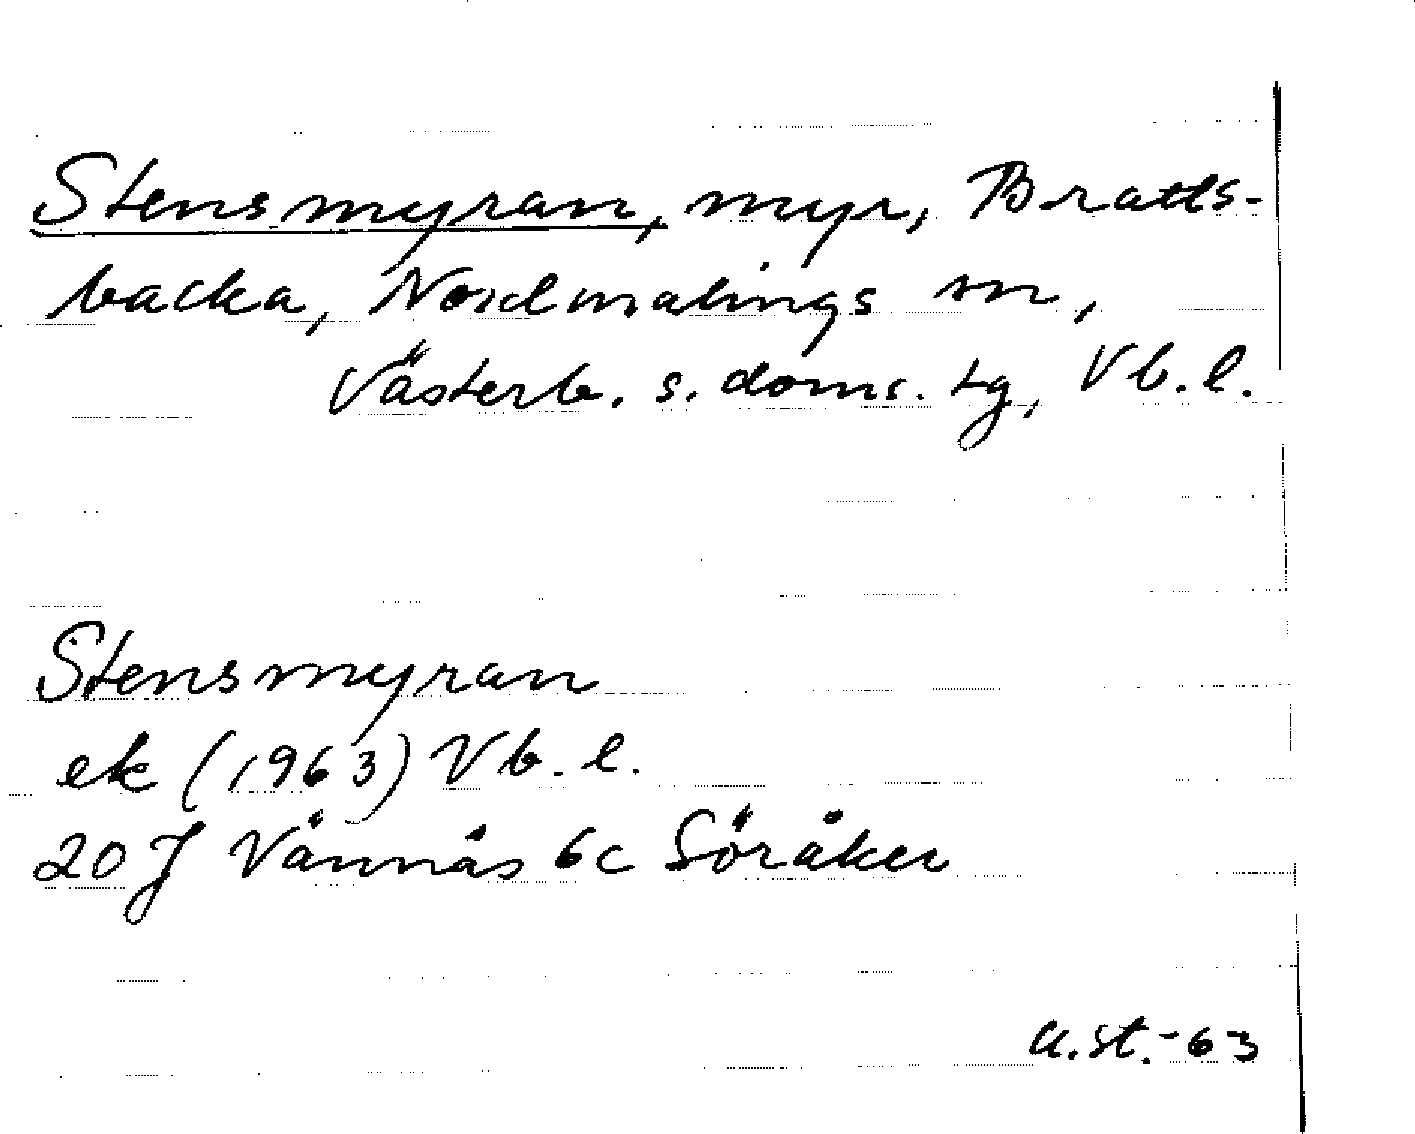 Stensmyran, myr, Bratts-
backa, Nordmalings sn,
Västerb. s. doms. tg, Vb. l.
Stensmyran
ek (1963) Vb. l.
20 J Vännäs 6c Söråker
U.St.-63